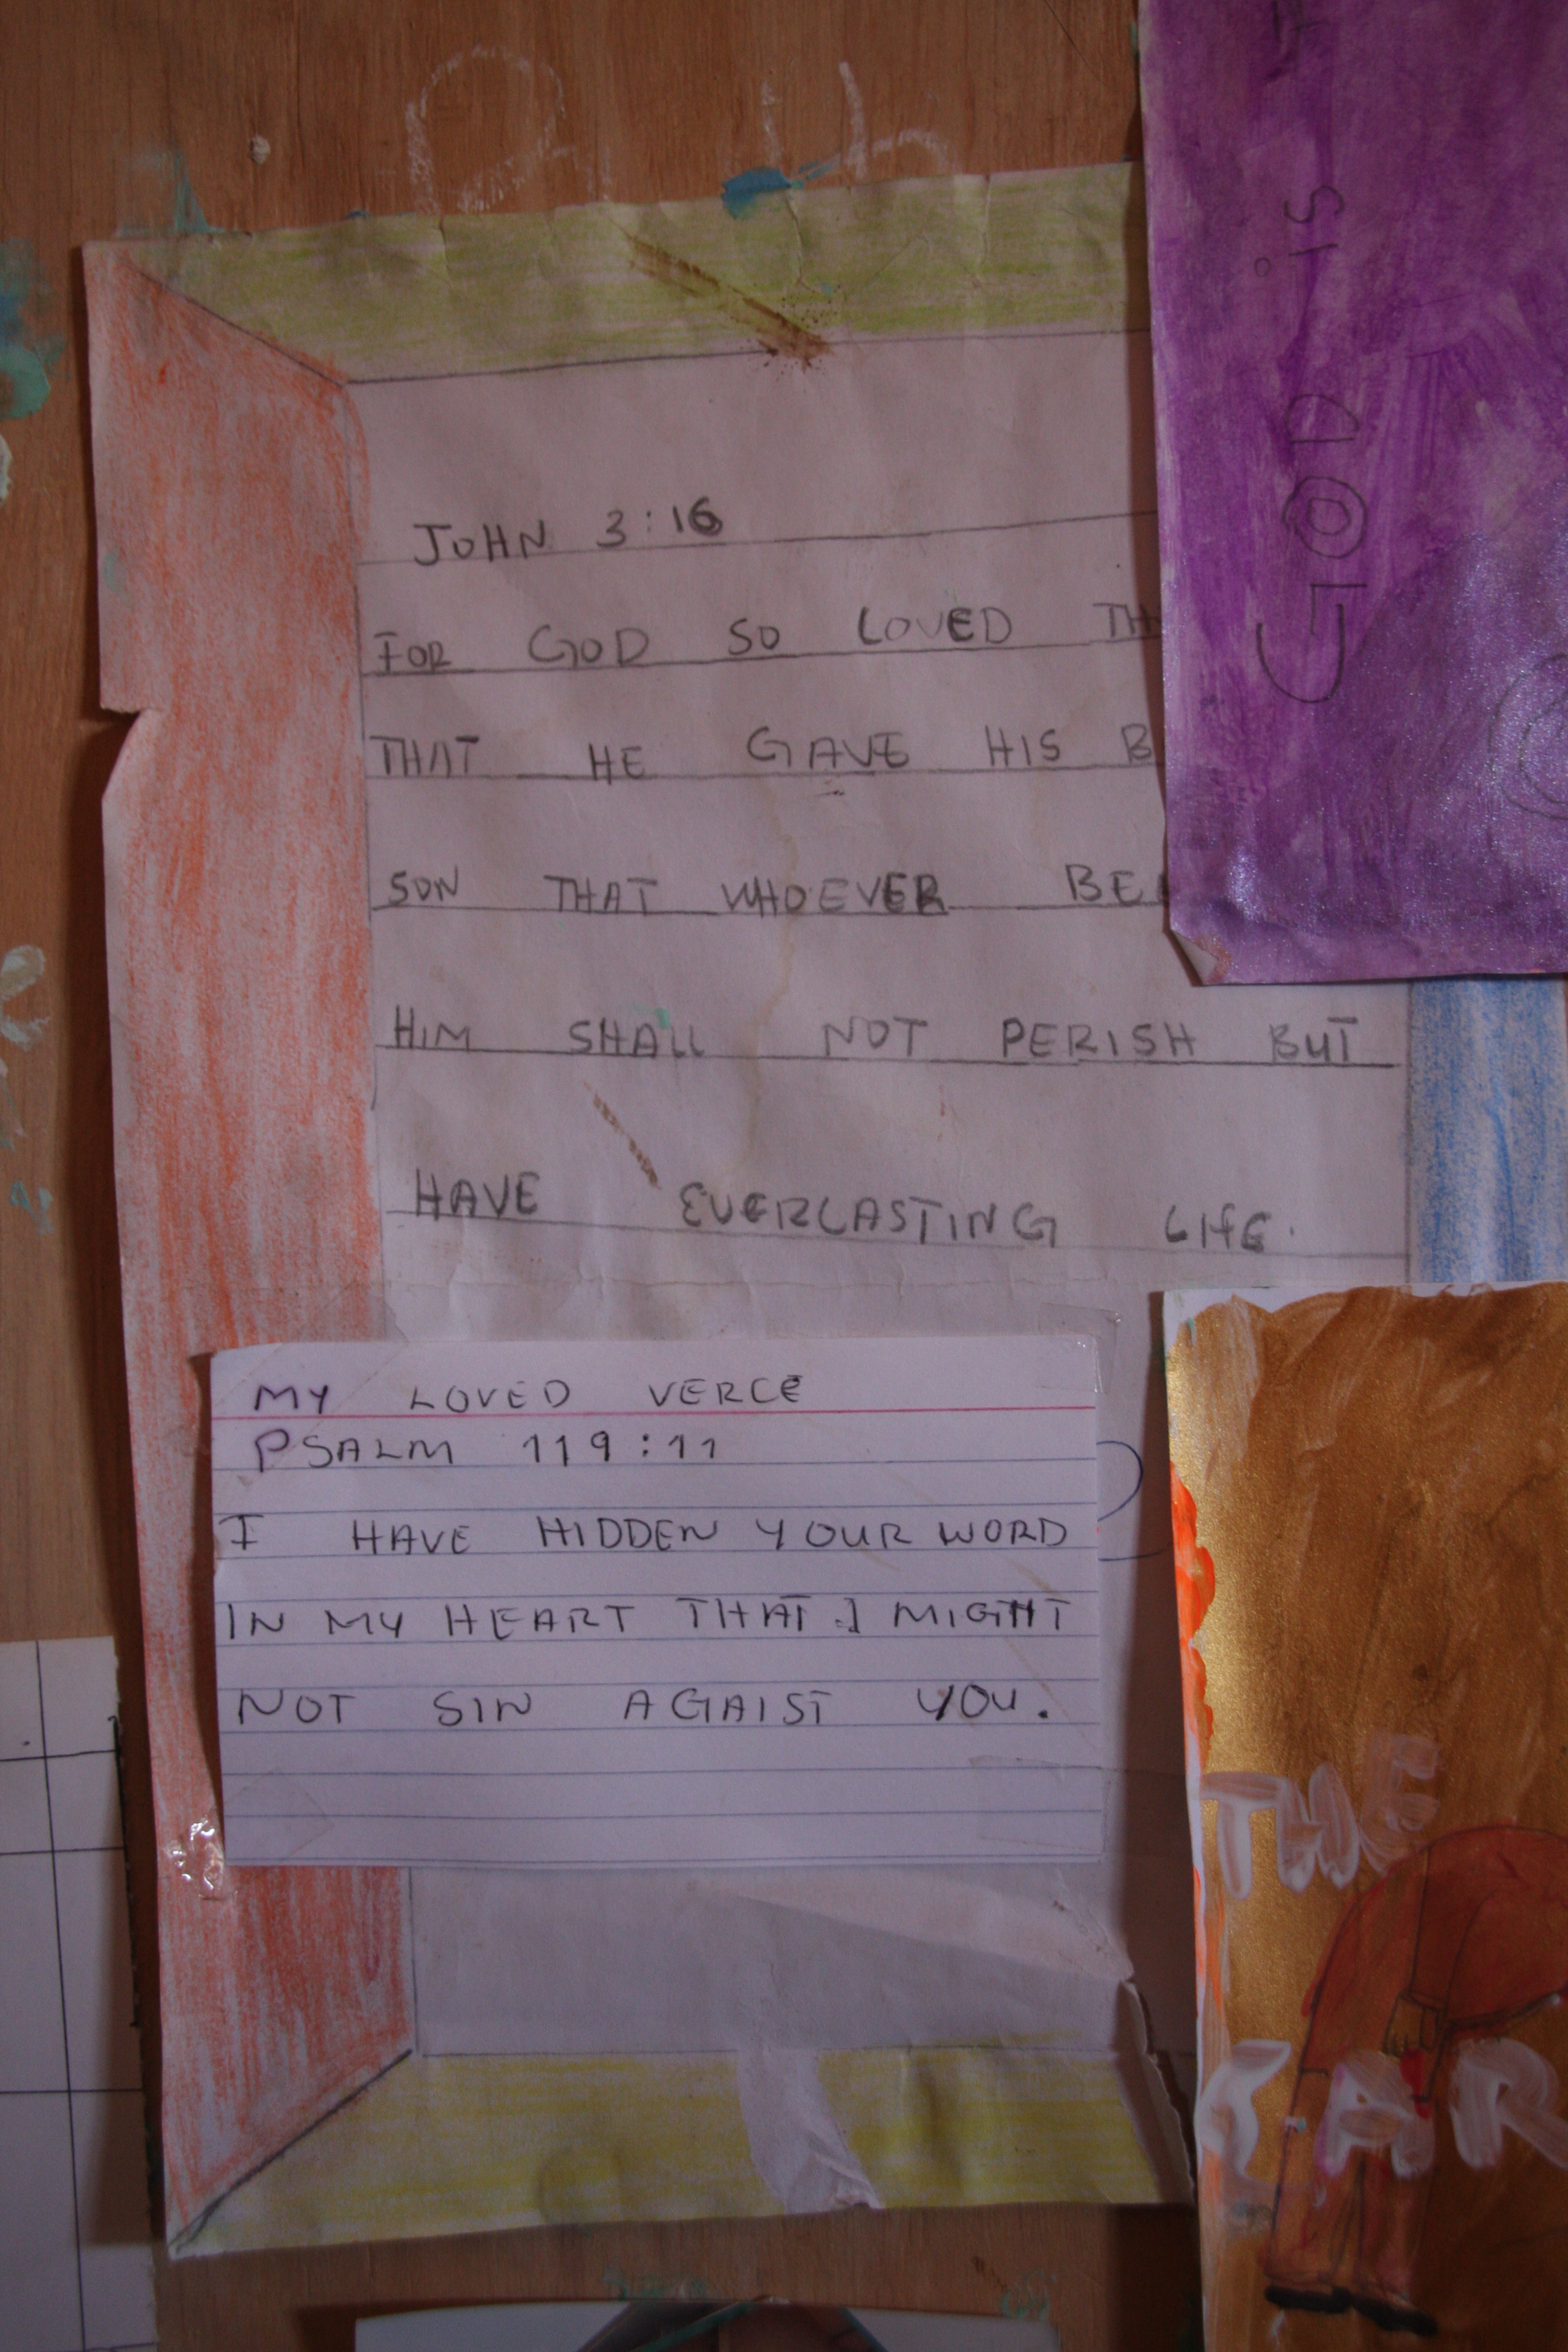 JOHN 3:16
FOR GOD SO LOVED
THAT HE GAVE HIS
SON THAT WHOEVER
HIM SHALL NOT PERISH BUT
HAVE EVERLASTING LIFE.
MY LOVED VERCE
PSALM 119:11
I HAVE HIDDEN YOUR WORD
IN MY HEART THAT I MIGHT
NOT SIN AGAIST YOU.
GOD is
THE